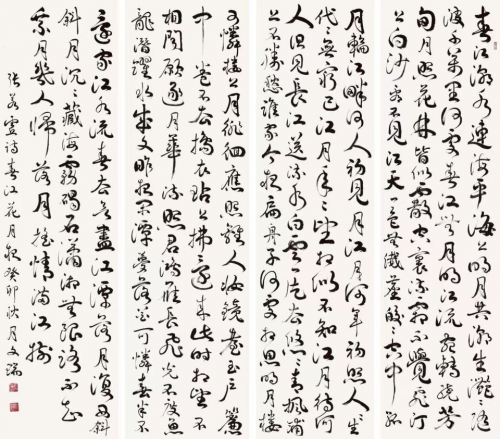 春江潮水連海平海上明月共潮生灩〻隨
波千萬里何處春江無月明江流宛轉繞芳
甸月照花林皆似霰空裏流霜不覺飛汀
上白沙看不見江天一色無纖塵皎〻空中孤
月輪江畔何人初見月江月何年初照人人生
代〻無窮已江月年〻望相似不知江月待何
人但見長江送流水白雲一片去悠〻青楓浦
上不勝愁誰家今夜扁舟子何處相思明月樓
可憐樓上月徘徊應照離人妝鏡臺玉戶簾
中卷不去搗衣砧上拂還來此時相望不
相聞願逐月華流照君鴻雁長飛光不度魚
龍潛躍水成文昨夜閑潭夢落花可憐春半不
還家江水流春去欲盡江潭落月復西斜
斜月沉〻藏海霧碣石瀟湘無限路不知
乘月幾人歸落月搖情滿江樹
張若虛詩春江花月夜癸卯秋月文